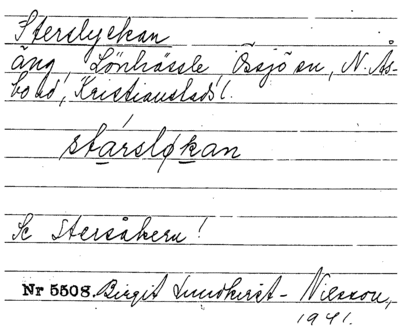 Sterslyckan
äng, Lönhässle, Össjö sn, N. Ås-
bo hd, Kristianstads l.
stársløkan
Se Stersåkern!
Nr 5508. Birgit Lundkvist-Nilsson,
1941.